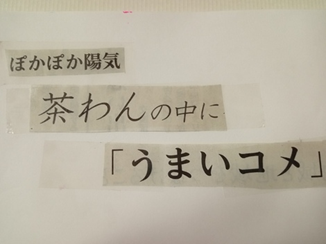 ぽかぽか陽気
茶わんの中に
「うまいコメ」